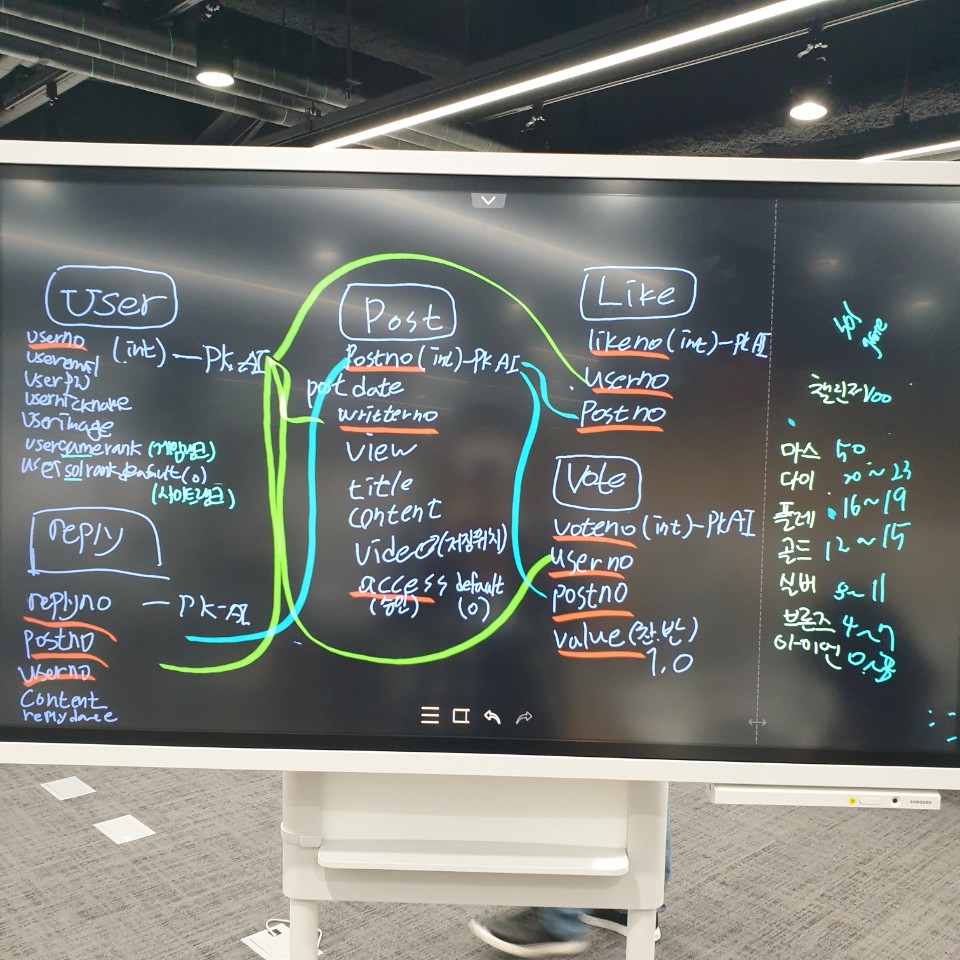 User
userno (int) - PK, AI
useremail
Userpw
usernickname
Userimage
usergamerank (게임랭크)
usersolrank default(0)
(사이트랭크)
reply
replyno - PK-AI
Postno
Userno
Content
replydate
Post
Postno (int)-PK AI
post date
writerno
view
title
content
video (저장위치)
access default
(승인) (0)
Like
likeno (int)-PK AI
userno
Postno
Vote
voteno (int)-PK AI
userno
postno
value (찬.반)
1.0
챌린저 100
마스 50
다이 20~23
플레 16~19
골드 12~15
실버 8~11
브론즈 4~7
아이언
SAMSUNG